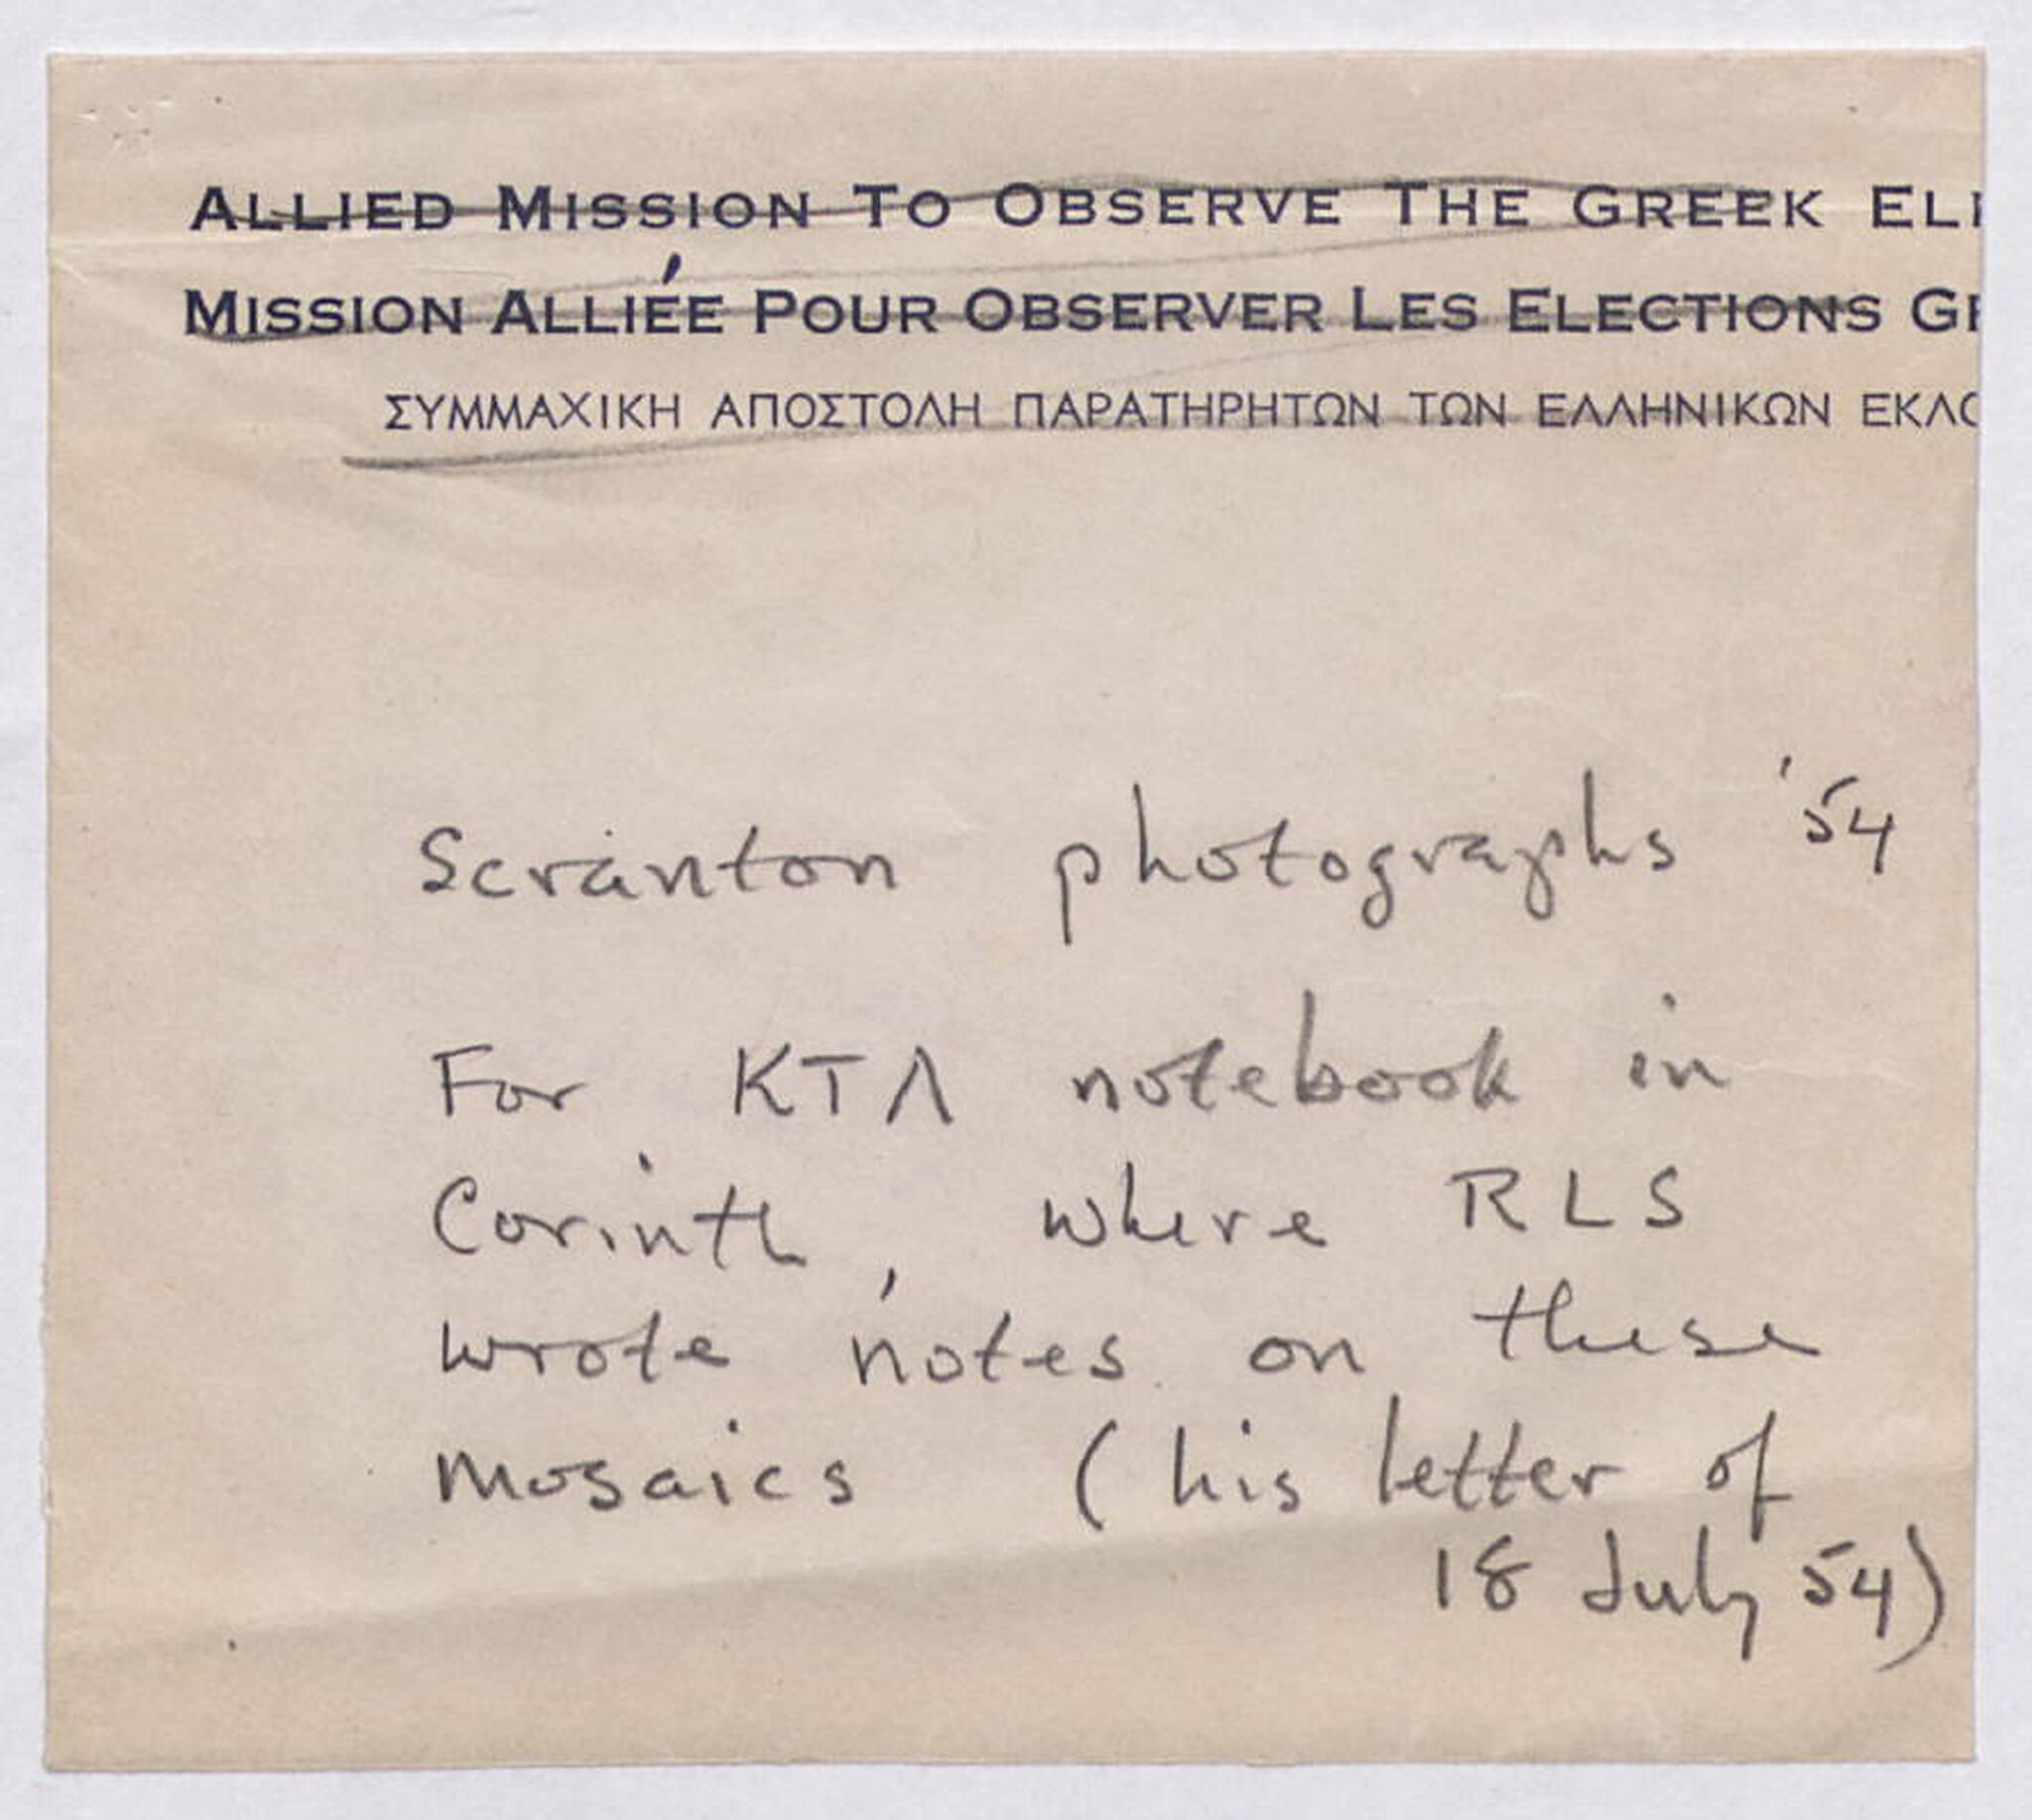 ALLIED MISSION TO OBSERVE THE GREEK
MISSION ALLIÉE POUR OBSERVER LES ELECTIONS
ΣΥΜΜΑΧΙΚΗ ΑΠΟΣΤΟΛΗ ΠΑΡΑΤΗΡΗΤΩΝ ΤΩΝ ΕΛΛΗΝΙΚΩΝ
Scranton photographs '54
For ΚΤΛ notebook in
Corinth, where RLS
wrote notes on these
mosaics (his letter of
18 July 54)